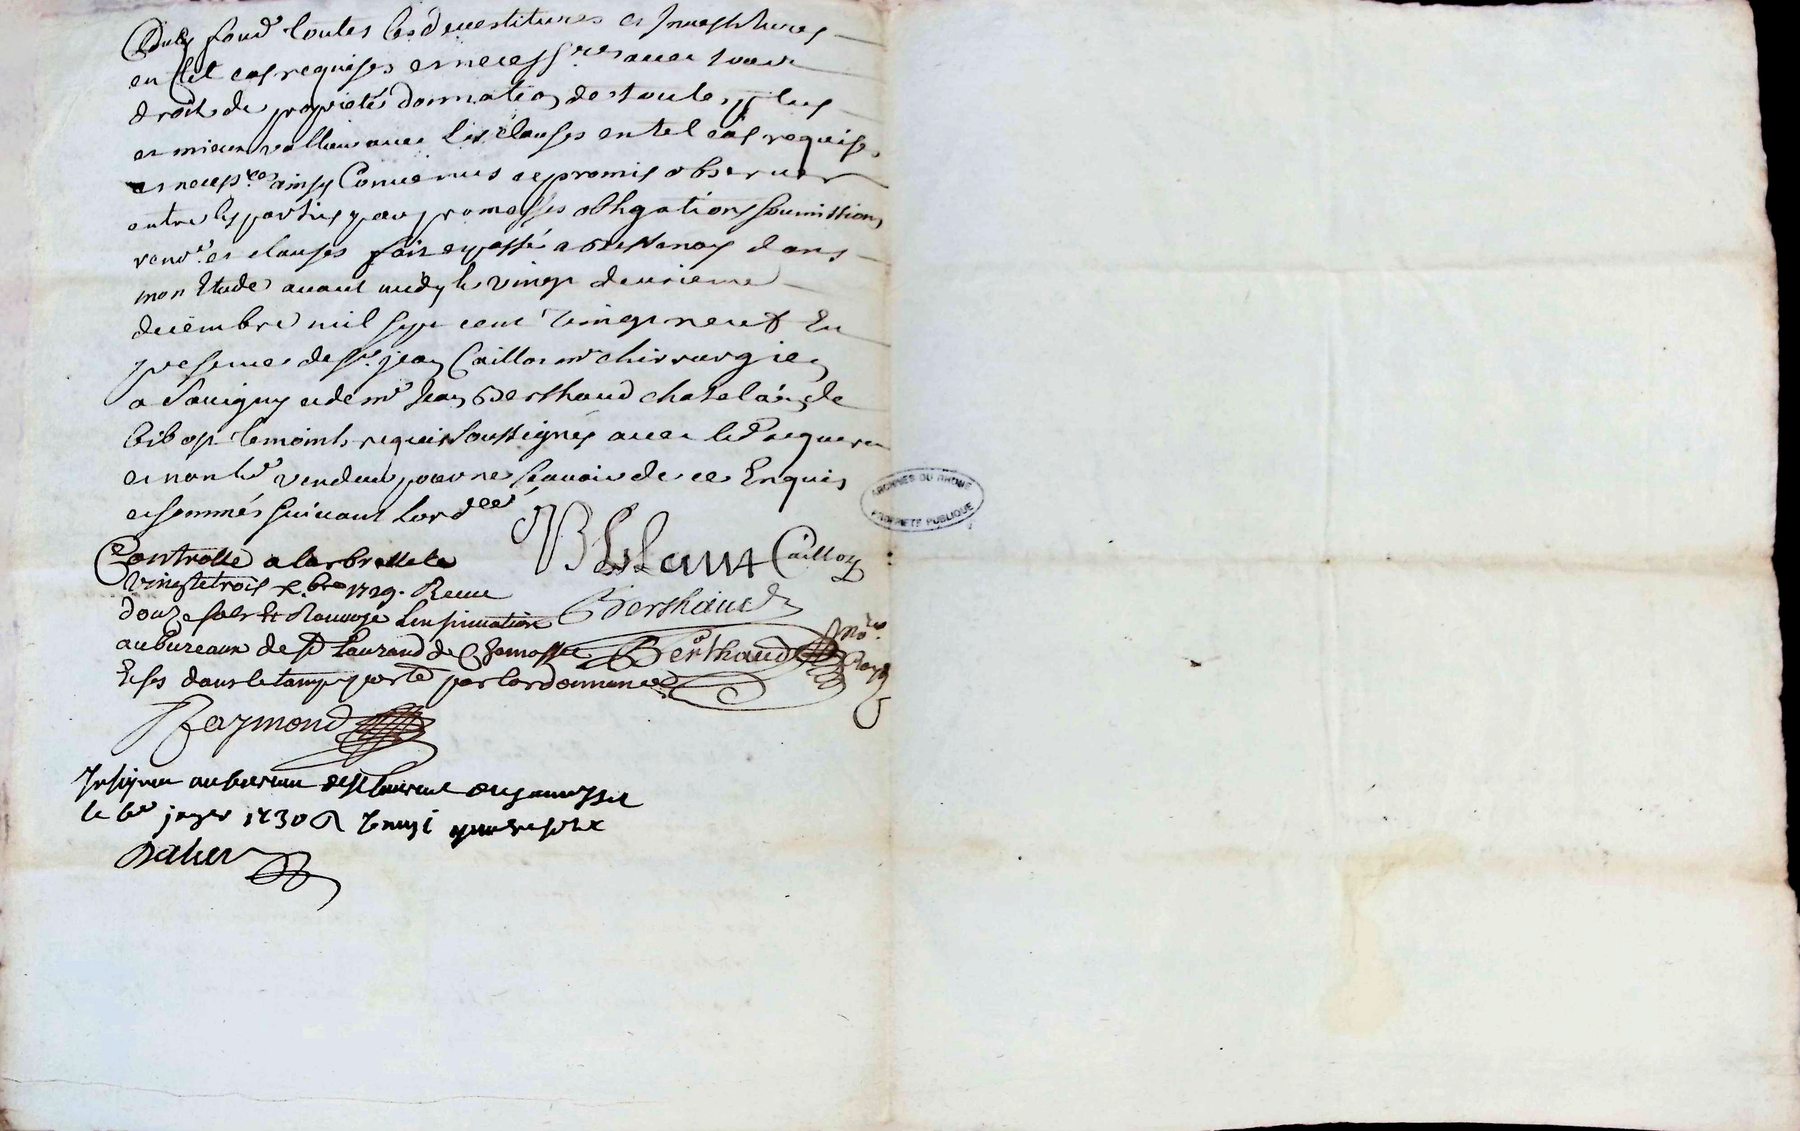 Dud. fond toutes les devestitures et Investitures
en tel cas requises et necess.res avec tous
droits de proprieté domination de toute plus
et mieux vallue avec les clauses en tel cas requises
et necess.res ainsy Convenus et promis observer
entre les parties par promesses obligations soumissions
renv.s et clauses fait et passé a Bessenay dans
mon Etude avant midy le vingt deuxieme
decembre mil sept cent vingt neuf En
presence de Sr. jean Caillot mr chirurgien
a Savigny et de mr Jean Berthaud chatelain de
Bibost temoins requis soussignés avec led acquereur
et non led vendeur pour ne scavoir de ce Enquis
et sommés suivant Lord.ce
Controllé a larbresle le
vingt et trois xbre 1729. Receu
douze sols et Renvoyé Linsinuation
au Bureaux de St Laurand de Chamousset
Et fes dans le tamps porté par lordonnance
Raymond
B Blanc Caillot
Berthaud
Berthaud Nore Royal
ARCHIVES DU RHONE
PROPRIETE PUBLIQUE
Insinué au bureau de St Laurent de Chamousset
le janvr 1730